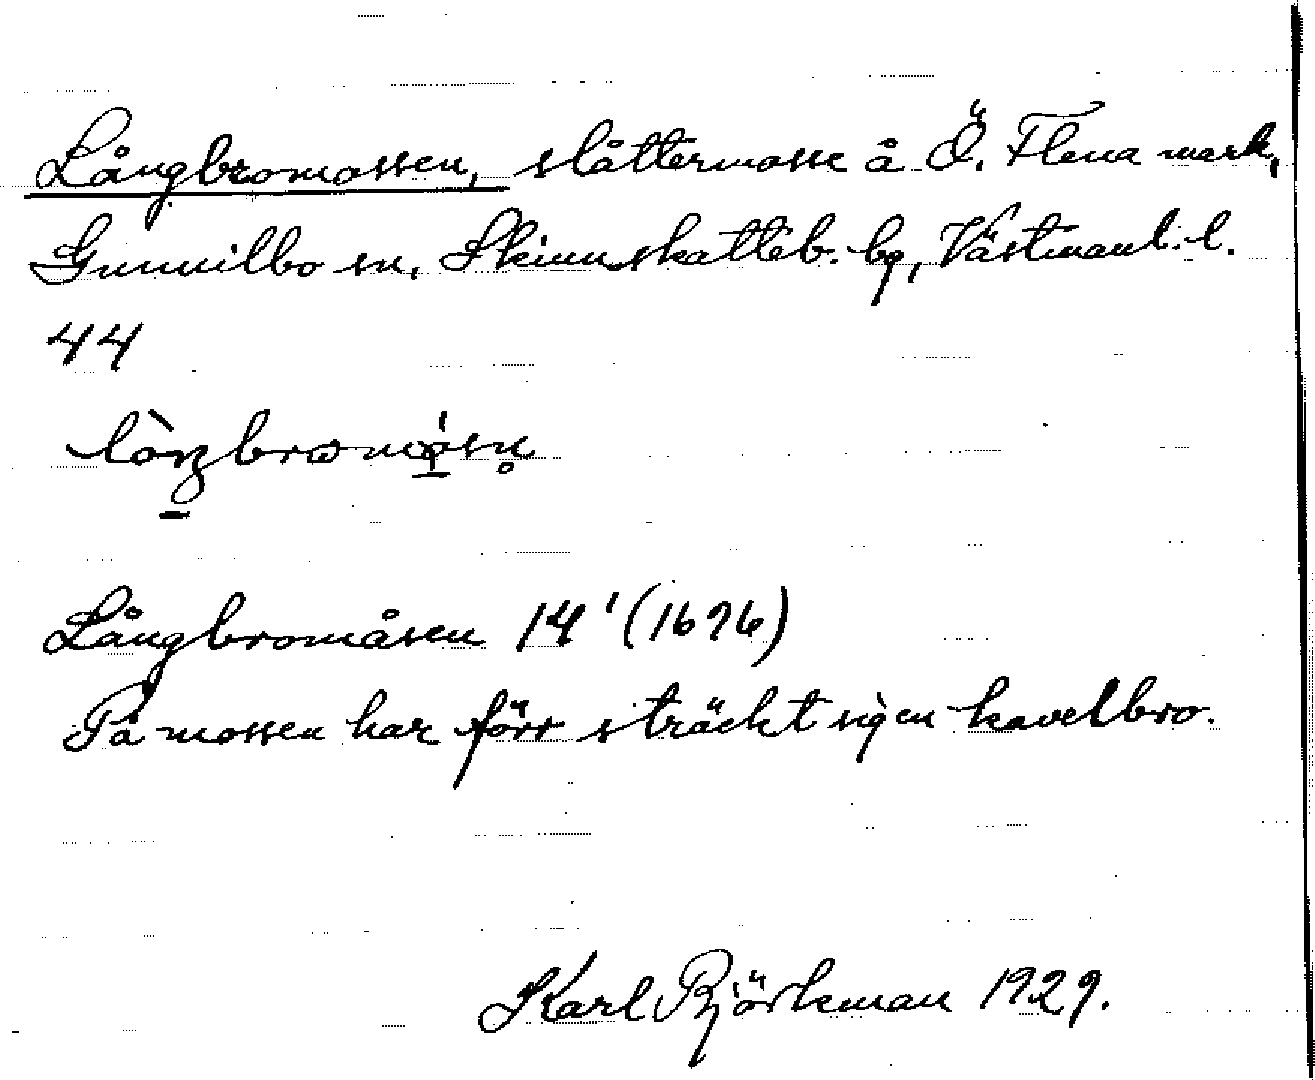 Långbromossen, slåttermosse å Ö. Flena mark,
Gunnilbo sn, Skinnskatteb. bg, Västmanl. l.
44
Långbromåsen 14' (1696)
På mossen har förr sträckt sig en kavelbro.
Karl Björkman 1929.